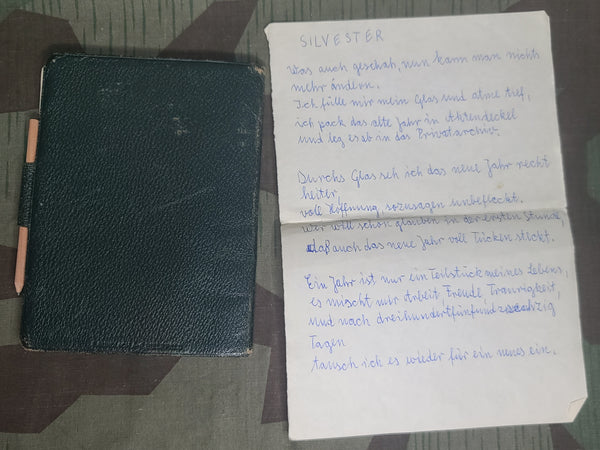 SILVESTER
Was auch geschah, nun kann man nichts
mehr ändern.
Ich fülle mir mein Glas und atme tief,
ich pack das alte Jahr in Aktendeckel
und leg es ab in das Privatarchiv.
Durchs Glas seh ich das neue Jahr recht
heiter,
voll Hoffnung, sozusagen unbefleckt.
Wer will schon glauben in der ersten Stunde,
daß auch das neue Jahr voll Tücken steckt.
Ein Jahr ist nur ein Teilstück meines Lebens,
es mischt mir Arbeit, Freude, Traurigkeit,
und nach dreihundertfünfund
Tagen
tausch ich es wieder für ein neues ein.